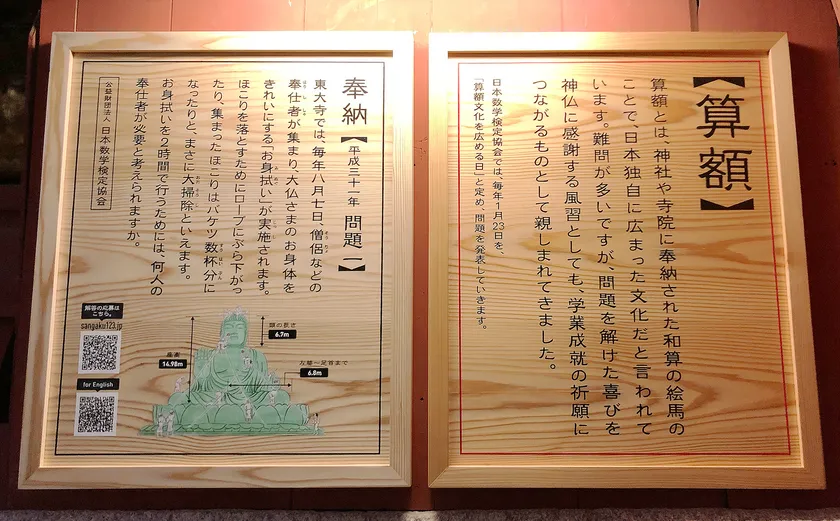 【算額】
算額とは、神社や寺院に奉納された和算の絵馬の
ことで、日本独自に広まった文化だと言われて
います。難問が多いですが、問題を解けた喜びを
神仏に感謝する風習としても、学業成就の祈願に
つながるものとして親しまれてきました。
日本数学検定協会では、毎年1月23日を、
「算額文化を広める日」と定め、問題を発表していきます。
奉納【平成三十一年 問題一】
東大寺では、毎年八月七日 僧侶などの
奉仕者が集まり、大仏さまのお身体を
きれいにする「お身拭い」が実施されます。
ほこりを落とすためにロープにぶら下がっ
たり、集まったほこりはバケツ数杯分に
なったりと、まさに大掃除といえます。
お身拭いを2時間で行うためには、何人の
奉仕者が必要と考えられますか。
公益財団法人 日本数学検定協会
解答の応募は
こちら。
sangaku123.jp
for English
頭の長さ
6.7m
座高
14.98m
左膝―足首まで
6.8m